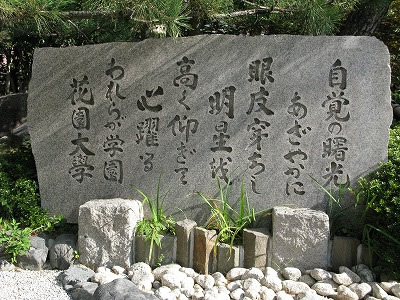 自覚の曙光
あざやかに
眼皮穿ちし
明星を
高く仰ぎて
心躍る
われらが学園
花園大學